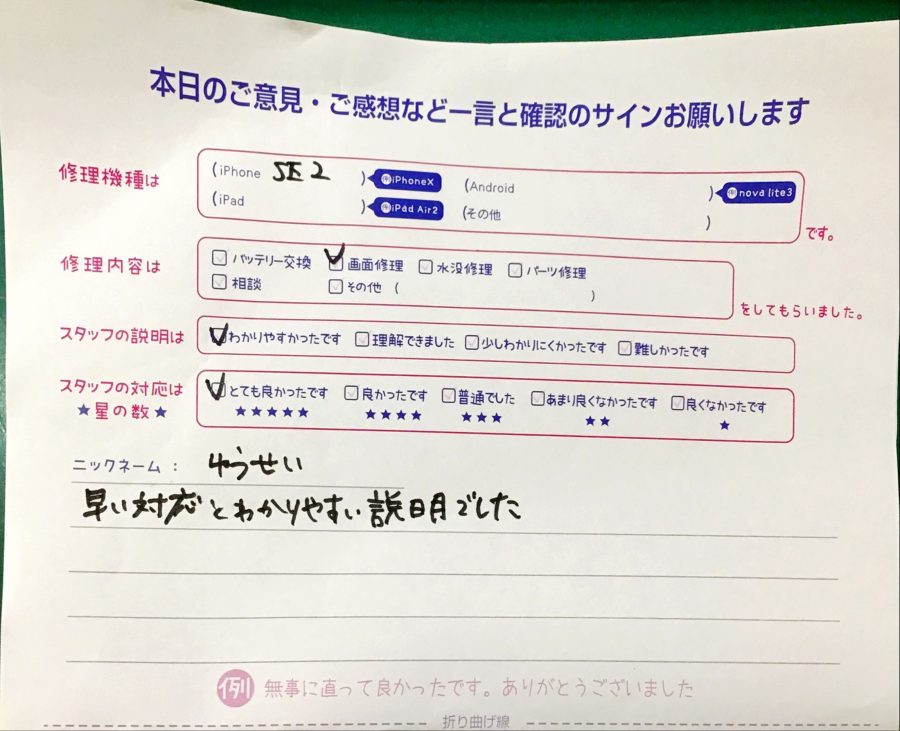 本日のご意見・ご感想など一言と確認のサインお願いします
修理機種は
(iPhone SE2 ) 例iPhoneX (Android ) 例nova lite3
(iPad ) 例iPad Air2 (その他 )
です。
修理内容は
バッテリー交換 画面修理 水没修理 パーツ修理
相談 その他 ( )
をしてもらいました。
スタッフの説明は わかりやすかったです 理解できました 少しわかりにくかったです 難しかったです
スタッフの対応は とても良かったです 良かったです 普通でした あまり良くなかったです 良くなかったです
★星の数★ ★★★★★ ★★★★ ★★★ ★★ ★
ニックネーム： ゆうせい
早い対応とわかりやすい説明でした
例 無事に直って良かったです。ありがとうございました
折り曲げ線